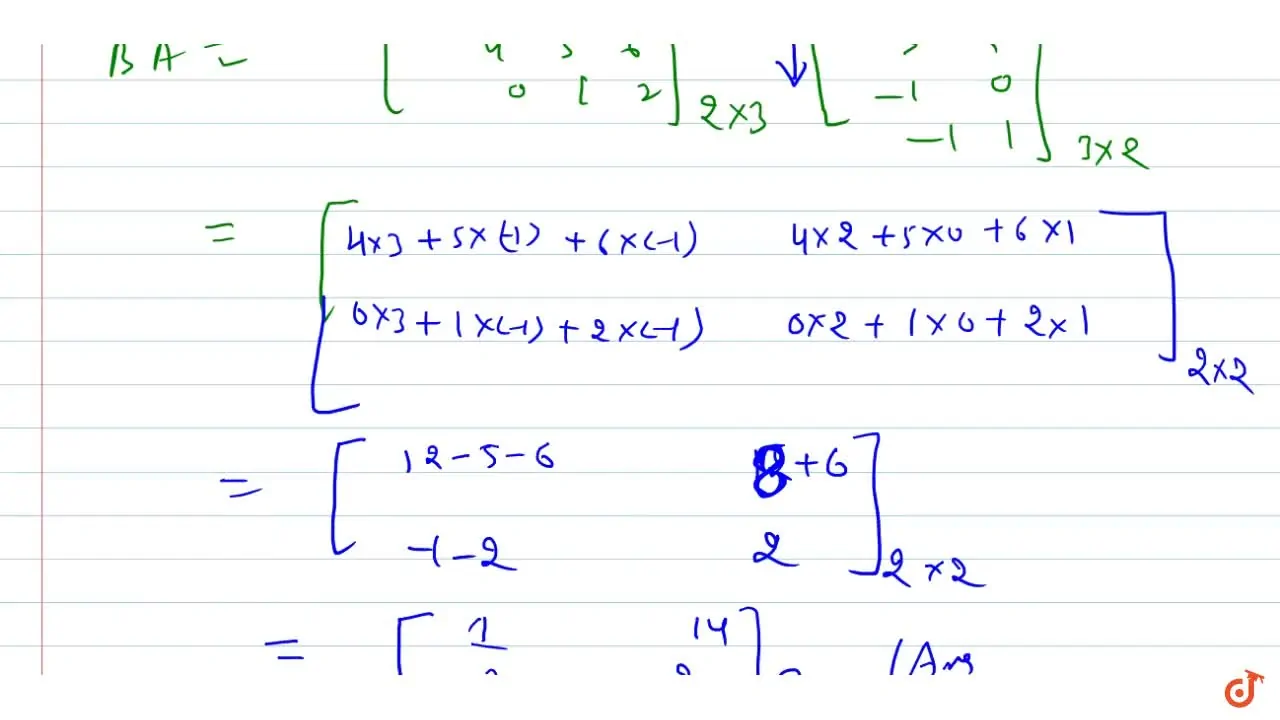 BA =
0 1 2 ] 2×3 ↓ [ -1 0
-1 1 ] 3×2
= [ 4×3 + 5×(-1) + 6×(-1) 4×2 + 5×0 + 6×1
0×3 + 1×(-1) + 2×(-1) 0×2 + 1×0 + 2×1 ] 2×2
= [ 12-5-6 8+6
-1-2 2 ] 2×2
= [ 1 14 ] (Ans